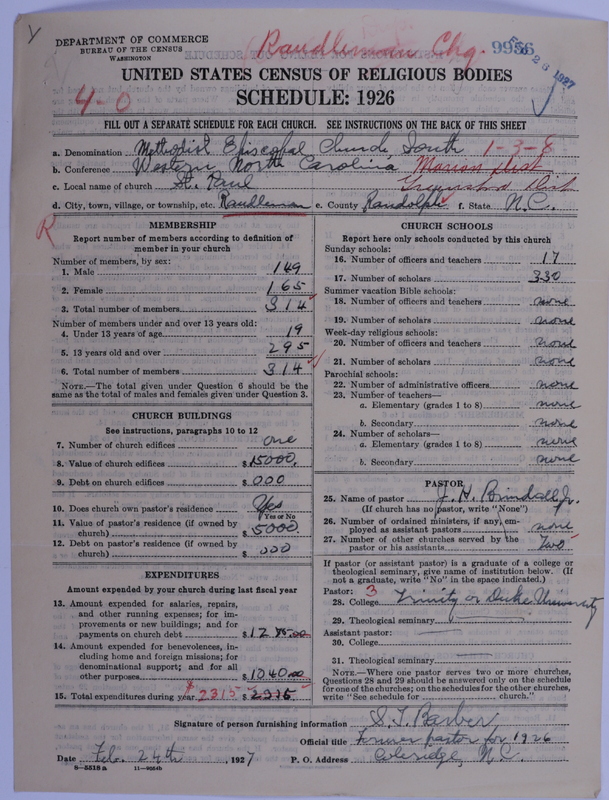 Randleman Chg.
DEPARTMENT OF COMMERCE
BUREAU OF THE CENSUS
WASHINGTON
9956
1927
UNITED STATES CENSUS OF RELIGIOUS BODIES
4-0
SCHEDULE: 1926
FILL OUT A SEPARATE SCHEDULE FOR EACH CHURCH. SEE INSTRUCTIONS ON THE BACK OF THIS SHEET
a. Denomination Methodist Episcopal Church, South 1-3-8
b. Conference Western North Carolina Marion Dist
c. Local name of church St. Paul Greensboro Dist
d. City, town, village, or township, etc. Randleman e. County Randolph f. State N.C.
R
MEMBERSHIP
Report number of members according to definition of
member in your church
Number of members, by sex:
1. Male 149
2. Female 165
3. Total number of members 314
Number of members under and over 13 years old:
4. Under 13 years of age 19
5. 13 years old and over 295
6. Total number of members 314
NOTE.—The total given under Question 6 should be
same as the total of males and females given under Question 3.
CHURCH BUILDINGS
See instructions, paragraphs 10 to 12
7. Number of church edifices one
8. Value of church edifices $ 15000.
9. Debt on church edifices $ 000
10. Does church own pastor's residence Yes
Yes or No
11. Value of pastor's residence (if owned by
church) $ 5000.
12. Debt on pastor's residence (if owned by
church) $ 000
EXPENDITURES
Amount expended by your church during last fiscal year
13. Amount expended for salaries, repairs,
and other running expenses; for im-
provements or new buildings; and for
payments on church debt $
14. Amount expended for benevolences, in-
cluding home and foreign missions; for
denominational support; and for all
other purposes $ 1040.00
15. Total expenditures during year $2315 $ 2315
CHURCH SCHOOLS
Report here only schools conducted by this church
Sunday schools:
16. Number of officers and teachers 17
17. Number of scholars 330
Summer vacation Bible schools:
18. Number of officers and teachers none
19. Number of scholars none
Week-day religious schools:
20. Number of officers and teachers none
21. Number of scholars none
Parochial schools:
22. Number of administrative officers none
23. Number of teachers—
a. Elementary (grades 1 to 8) none
b. Secondary none
24. Number of scholars—
a. Elementary (grades 1 to 8) none
b. Secondary none
PASTOR
25. Name of pastor J. H. Brendall Jr.
(If church has no pastor, write "None")
26. Number of ordained ministers, if any, em-
ployed as assistant pastors none
27. Number of other churches served by the
pastor or his assistants Two
If pastor (or assistant pastor) is a graduate of a college or
theological seminary, give name of institution below. (If
not a graduate, write "No" in the space indicated.)
Pastor: 3
28. College Trinity or Duke University
29. Theological seminary
Assistant pastor:
30. College
31. Theological seminary
NOTE.—Where one pastor serves two or more churches,
Questions 28 and 29 should be answered only on the schedule
for one of the churches; on the schedules for the other churches,
write "See schedule for church."
Signature of person furnishing information S. T. Barber
Official title Former pastor for 1926
Date Feb. 24th, 1927 P. O. Address Coleridge, N.C.
8-5518 a